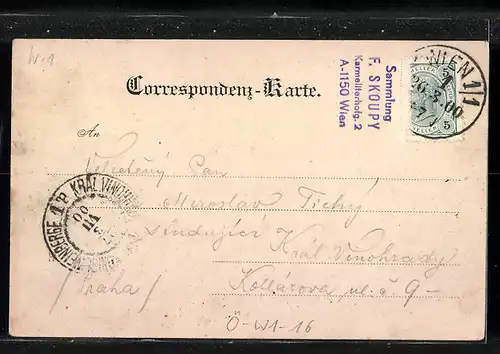 IV-1
WIEN 1/1
26.3.00
5
Sammlung
F. SKOUPY
Karmeliterhofg. 2
A-1150 Wien
Correspondenz-Karte.
An
Velectěný Pan
Miroslav Tichý
studující
Král Vinohrady
(Praha)
Kollárova ul. č 9-
KRÁL. VINOHRADY
WEINBERGE
Ö-W1-16